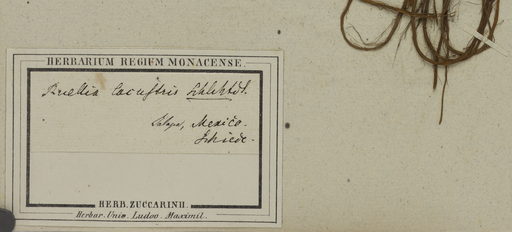 HERBARIUM REGIUM MONACENSE.
Ruellia lacustris Schlchtdl.
Jalapa, Mexico.
Schiede.
HERB. ZUCCARINII.
Herbar. Univ. Ludov. Maximil.